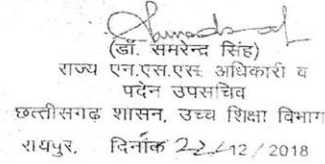 (डॉ. समरेन्द्र सिंह)
राज्य एन.एस.एस. अधिकारी व
पदेन उपसचिव
छत्तीसगढ़ शासन, उच्च शिक्षा विभाग
रायपुर, दिनांक 22/12/2018